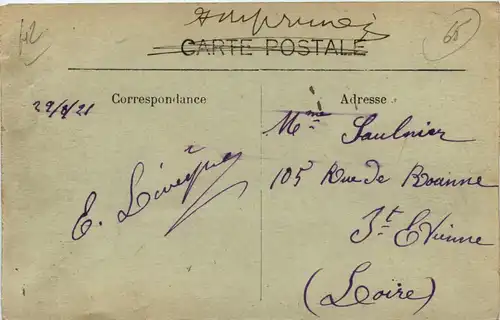 Imprimé
42
65
CARTE POSTALE
Correspondance
Adresse
29/8/21
E. Lévêque
Mme Saulnier
105 Rue de Roanne
St Etienne
(Loire)